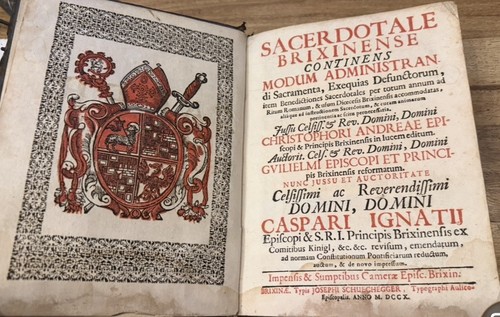 SACERDOTALE
BRIXINENSE
CONTINENS
MODUM ADMINISTRAN-
di Sacramenta, Exequias Defunctorum,
item Benedictiones Sacerdotales per totum annum ad
Ritum Romanum, & usum Diœcesis Brixinensis accommodatas,
aliaque ad instructionem Sacerdotum, & curam animarum
pertinentia; scitu pernecessaria.
Jussu Celsiss. & Rev. Domini, Domini
CHRISTOPHORI ANDREAE EPI-
scopi & Principis Brixinensis in lucem editum.
Authorit. Cels. & Rev. Domini, Domini
GVILIELMI EPISCOPI ET PRINCI-
pis Brixinensis reformatum.
NUNC JUSSU ET AUCTORITATE
Celsissimi ac Reverendissimi
DOMINI, DOMINI
CASPARI IGNATIJ
Episcopi & S. R. I. Principis Brixinensis ex
Comitibus Kinigl, &c. &c. revisum, emendatum,
ad normam Constitutionum Pontificiarum reductum,
auctum, & de novo impressum.
Impensis & Sumptibus Cameræ Episc. Brixin.
BRIXINÆ, Typis JOSEPHI SCHUECHEGGER, Typographi Aulico-
Episcopalis. ANNO M. DCCX.